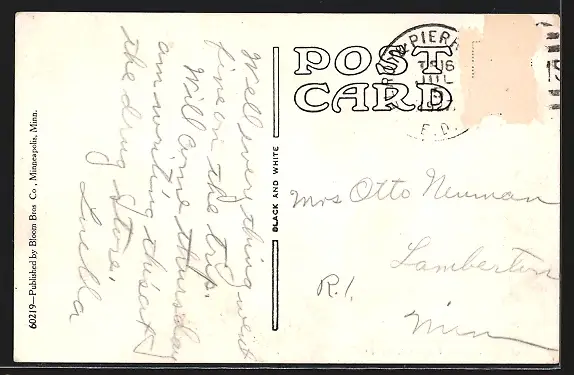 Well every thing went
fine on the trip.
Will come thursday
am writing this at
the drug store.
Luella
60219—Published by Bloom Bros Co., Minneapolis, Minn.
BLACK AND WHITE
POST
CARD
PIERR
JUL
Mrs Otto Neuman
Lamberton
R.1.
Minn